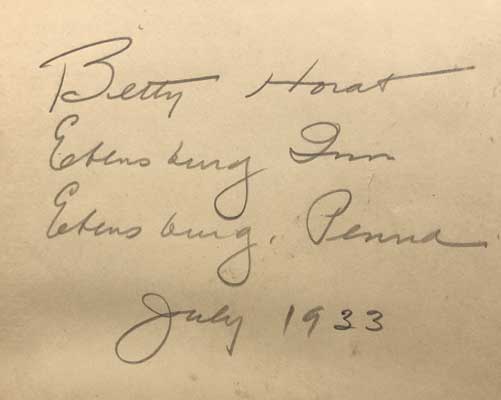 Betty Horat
Ebensburg Inn
Ebensburg, Penna
July 1933